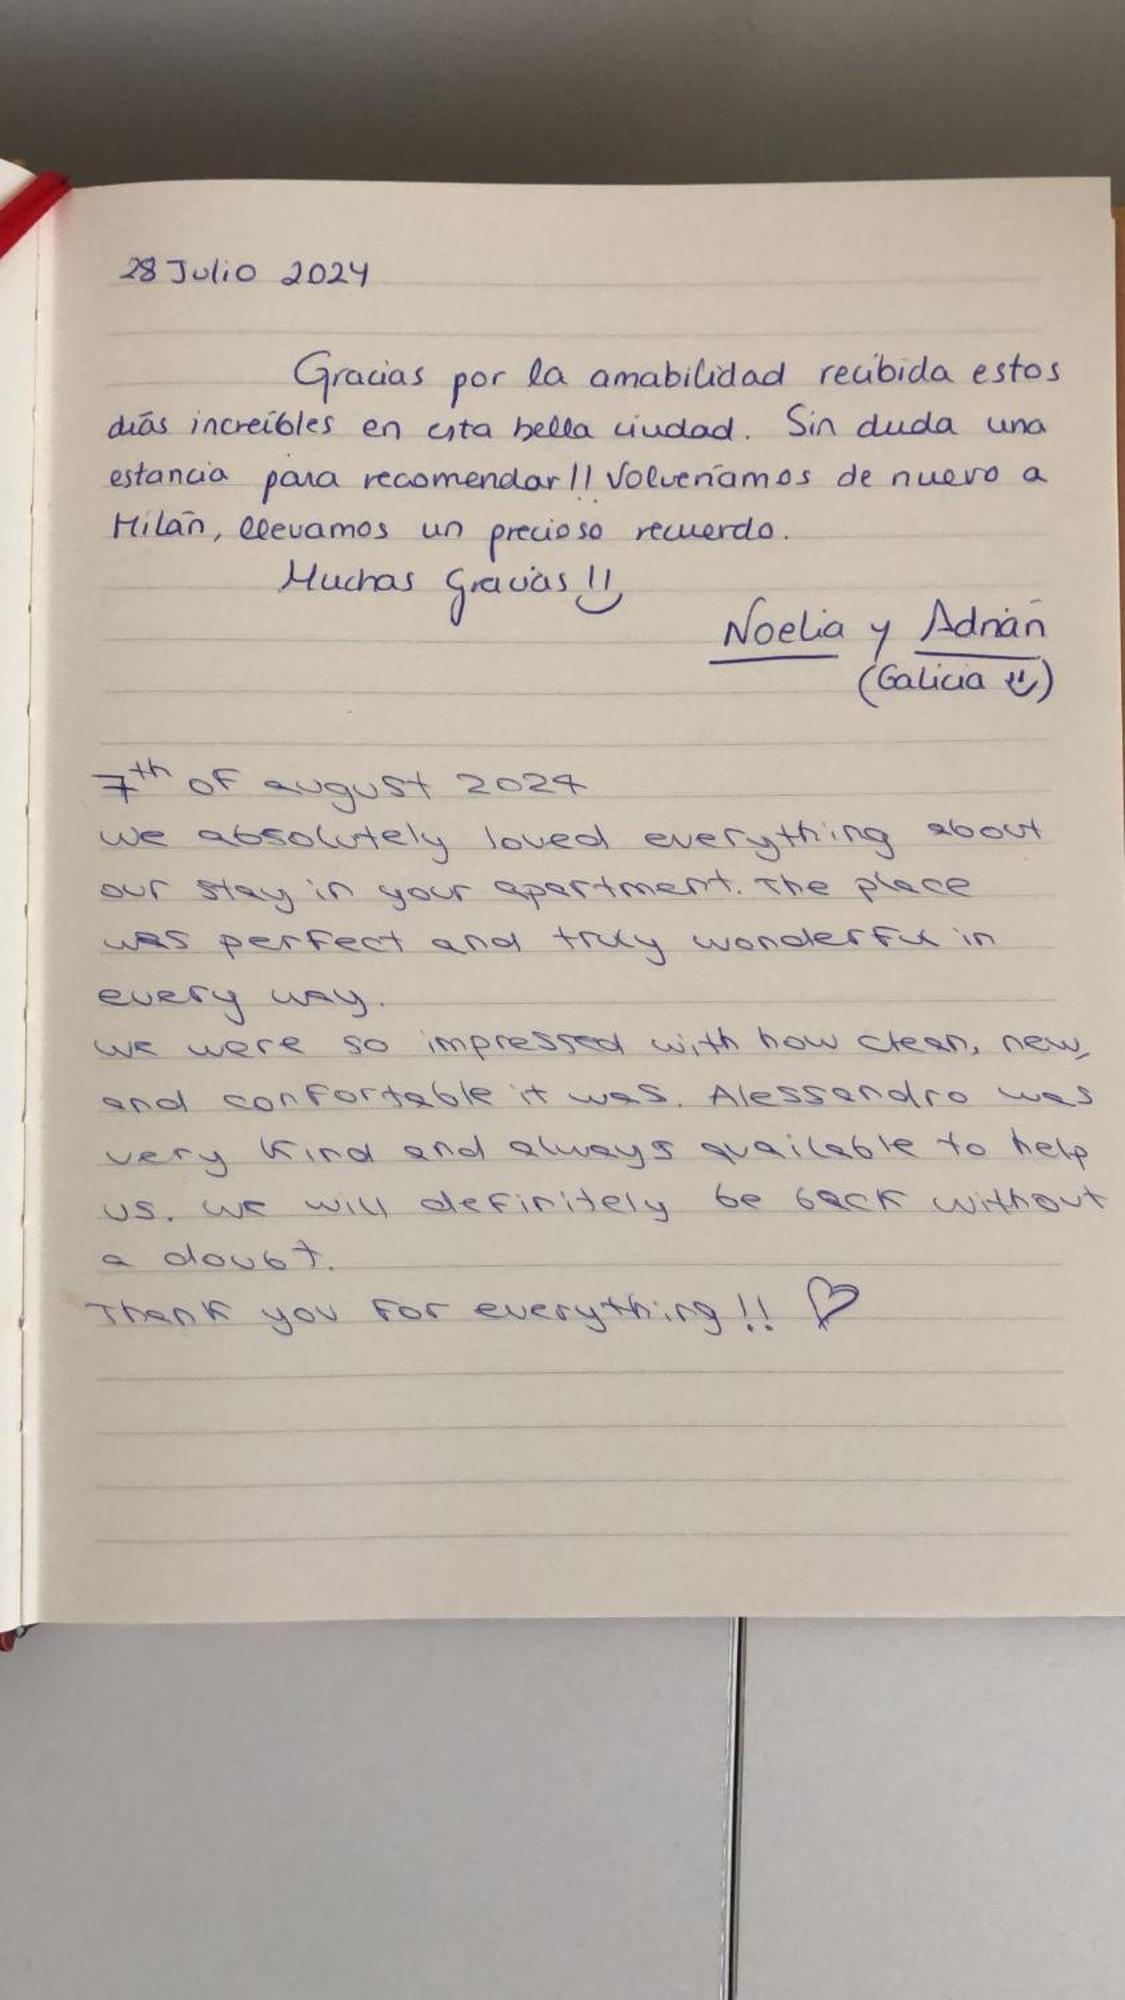 28 Julio 2024
Gracias por la amabilidad recibida estos
días increíbles en esta bella ciudad. Sin duda una
estancia para recomendar!! Volveríamos de nuevo a
Milán, llevamos un precioso recuerdo.
Muchas Gracias!!
Noelia y Adrián
(Galicia)
7th of august 2024
we absolutely loved everything about
our stay in your apartment. The place
was perfect and truly wonderful in
every way.
we were so impressed with how clean, new,
and confortable it was. Alessandro was
very kind and always available to help
us. we will definitely be back without
a doubt.
Thank you for everything!! ♡